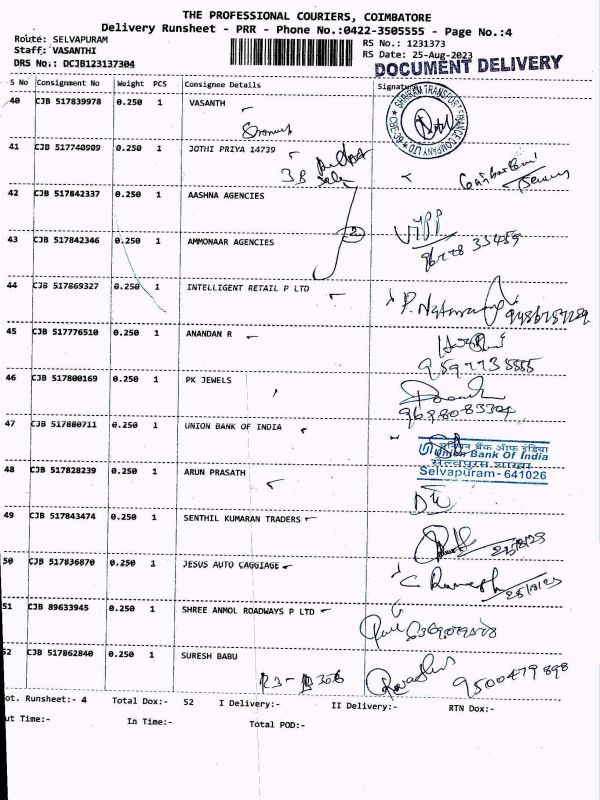 THE PROFESSIONAL COURIERS, COIMBATORE
Delivery Runsheet - PRR - Phone No.:0422-3505555 - Page No.:4
Route: SELVAPURAM
RS No.: 1231373
Staff: VASANTHI
RS Date: 25-Aug-2023
DRS No.: DCJB123137304
DOCUMENT DELIVERY
S No Consignment No Weight PCS Consignee Details Signature
40 CJB 517839978 0.250 1 VASANTH
41 CJB 517740909 0.250 1 JOTHI PRIYA 14739
42 CJB 517842337 0.250 1 AASHNA AGENCIES
2
43 CJB 517842346 0.250 1 AMMONAAR AGENCIES
44 CJB 517869327 0.250 1 INTELLIGENT RETAIL P LTD
45 CJB 517776510 0.250 1 ANANDAN R
46 CJB 517800169 0.250 1 PK JEWELS
47 CJB 517880711 0.250 1 UNION BANK OF INDIA
यूनियन बैंक ऑफ इंडिया
Union Bank Of India
Selvapuram - 641026
48 CJB 517828239 0.250 1 ARUN PRASATH
49 CJB 517843474 0.250 1 SENTHIL KUMARAN TRADERS
50 CJB 517836870 0.250 1 JESUS AUTO CAGGIAGE
C Ramesh
51 CJB 89633945 0.250 1 SHREE ANMOL ROADWAYS P LTD
52 CJB 517862840 0.250 1 SURESH BABU
9500479898
ot. Runsheet:- 4 Total Dox:- 52 I Delivery:- II Delivery:- RTN Dox:-
ut Time:- In Time:- Total POD:-